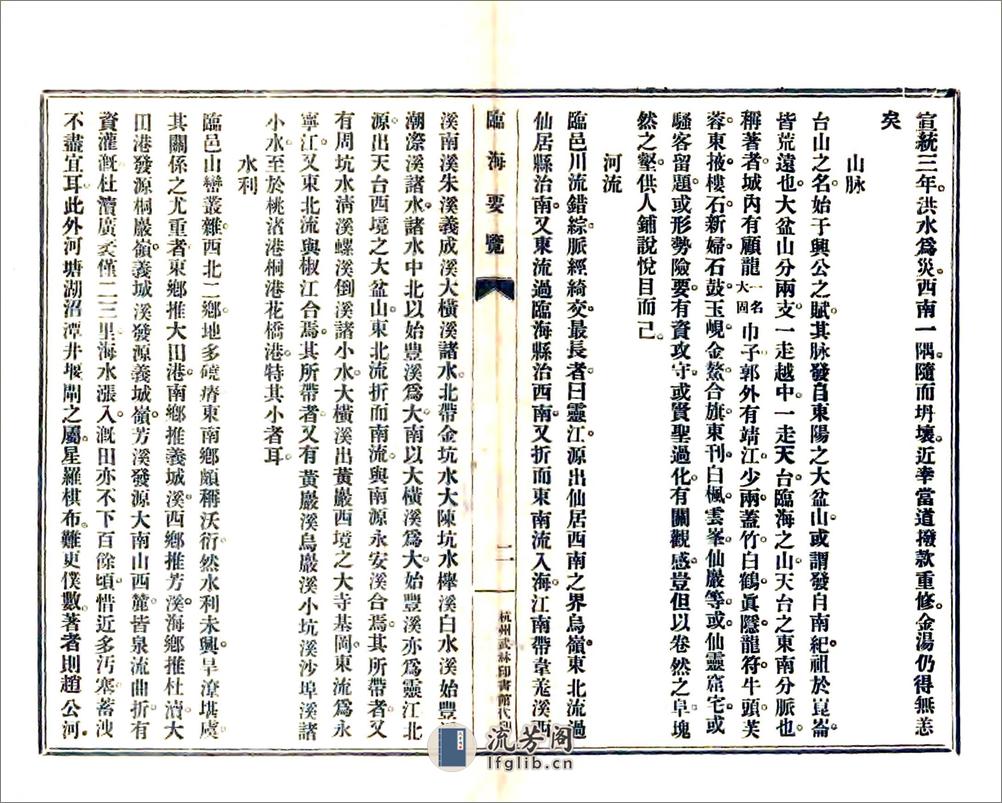 宣統三年。洪水爲災。西南一隅。隨而坍壞。近幸當道撥款重修。金湯仍得無恙
矣
山脉
台山之名。始于興公之賦。其脉發自東陽之大盆山。或謂發自南紀。祖於崑崙。
皆荒遠也。大盆山分兩支。一走越中。一走天台。臨海之山。天台之東南分脈也。
稱著者。城內有顧龍一名大固巾子。郭外有靖江。少兩。蓋竹。白鶴。眞隱。龍符。牛頭。芙
蓉。東掖。樓石。新婦石。鼓玉峴。金鰲。合旗。東刊。白楓。雲峯。仙巖等。或仙靈窟宅。或
騷客留題。或形勢險要。有資攻守。或賢聖過化。有關觀感。豈但以卷然之阜。塊
然之壑。供人鋪說悅目而已。
河流
臨邑川流錯綜。脈經綺交。最長者曰靈江。源出仙居西南之界烏嶺。東北流過
仙居縣治南。又東流過臨海縣治西南。又折而東南流入海。江南帶韋羗溪西
臨海要覽
二
杭州武林印書館代印
溪南溪朱溪義成溪大橫溪諸水。北帶金坑水大陳坑水櫸溪白水溪始豐
潮漈溪諸水。諸水中北以始豐溪爲大。南以大橫溪爲大。始豐溪亦爲靈江北
源。出天台西境之大盆山。東北流折而南流。與南源永安溪合焉。其所帶者。又
有周坑水淸溪螺溪倒溪諸小水。大橫溪出黃巖西境之大寺基岡。東流爲永
寧江。又東北流與椒江合焉。其所帶者。又有黃巖溪烏巖溪小坑溪沙埠溪諸
小水。至於桃渚港桐港花橋港。特其小者耳
水利
臨邑山巒叢雜。西北二鄉。地多磽瘠。東南鄉頗稱沃衍。然水利未興。旱潦堪虞。
其關係之尤重者。東鄉推大田港。南鄉推義城溪。西鄉推芳溪。海鄉推杜瀆。大
田港發源桐巖嶺。義城溪發源義城嶺。芳溪發源大南山西麓。皆泉流曲折。有
資灌漑。杜瀆廣袤僅二三里。海水漲入。漑田亦不下百餘頃。惜近多汚塞。蓄洩
不盡宜耳。此外河塘湖沼潭井堰閘之屬。星羅棋布。難更僕數。著者則趙公河。
流芳阁
lfglib.cn